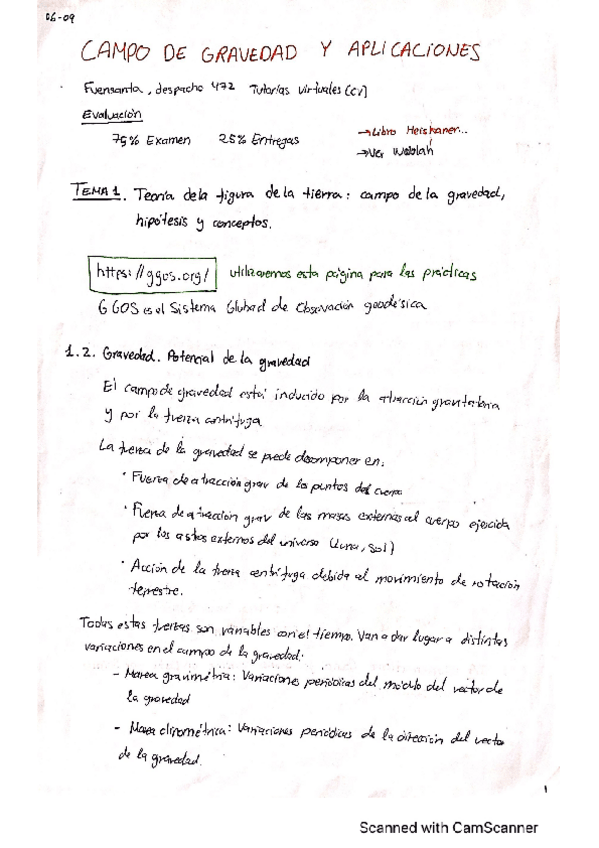 06-09
CAMPO DE GRAVEDAD Y APLICACIONES
Fuensanta, despacho 472 Tutorías virtuales (cv)
Evaluación
75% Examen 25% Entregas
→ Libro Heiskanen...
→ Ver
TEMA 1. Teoría de la figura de la tierra: campo de la gravedad,
hipótesis y conceptos.
https://ggos.org/ utilizaremos esta página para las prácticas
GGOS es el Sistema Global de Observación geodésica
1.2. Gravedad. Potencial de la gravedad
El campo de gravedad está inducido por la atracción gravitatoria
y por la fuerza centrífuga
La fuerza de la gravedad se puede descomponer en:
· Fuerza de atracción grav de los puntos del cuerpo
· Fuerza de atracción grav de las masas externas al cuerpo ejercida
por los astros externos del universo (luna, sol)
· Acción de la fuerza centrífuga debida al movimiento de rotación
terrestre.
Todas estas fuerzas son variables con el tiempo. Van a dar lugar a distintas
variaciones en el campo de la gravedad:
- Marea gravimétrica: Variaciones periódicas del módulo del vector de
la gravedad
- Marea clinométrica: Variaciones periódicas de la dirección del vector
de la gravedad.
1
Scanned with CamScanner